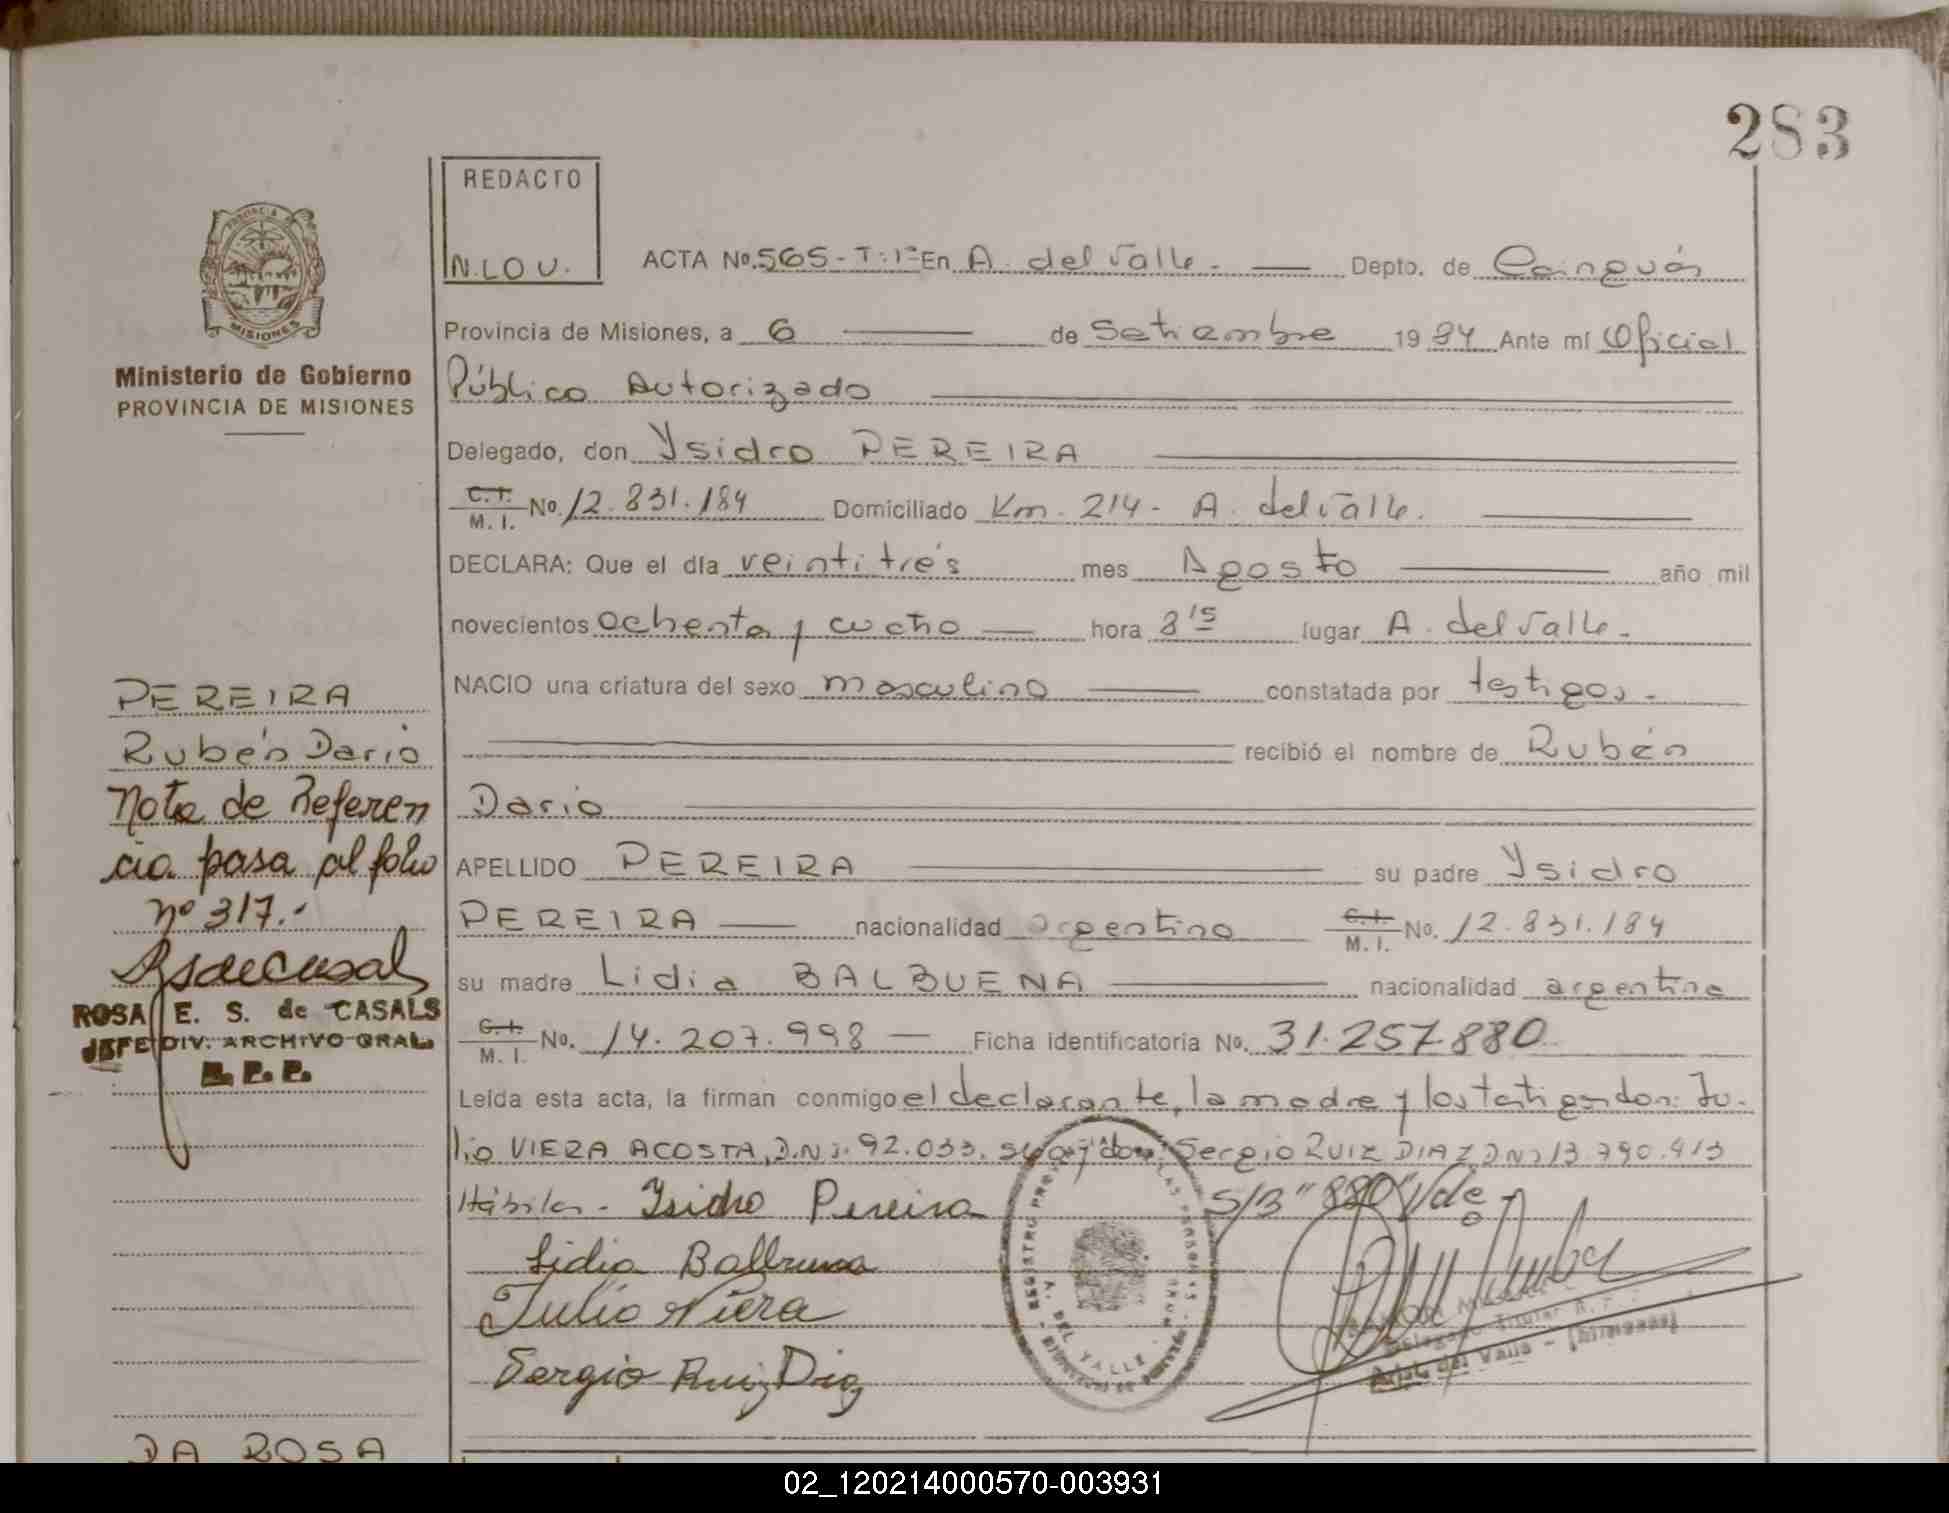 283
REDACTO
N.LOU.
ACTA Nº 565-T:1º En A. del Valle. Depto. de Cainguás
Provincia de Misiones, a 6 de Setiembre 1984 Ante mí Oficial
Público Autorizado
Delegado, don Ysidro PEREIRA
C.I. M.I. No. 12.831.184 Domiciliado Km. 214- A. del Valle.
DECLARA: Que el día veintitrés mes Agosto año mil
novecientos ochenta y cuatro hora 8 15 lugar A. del Valle.
NACIO una criatura del sexo masculino constatada por testigos.
recibió el nombre de Rubén
Dario
APELLIDO PEREIRA su padre Ysidro
PEREIRA nacionalidad argentino C.I. M.I. No. 12.831.184
su madre Lidia BALBUENA nacionalidad argentina
C.I. M.I. No. 14.207.998 Ficha identificatoria No. 31.257.880
Leída esta acta, la firman conmigo el declarante, la madre y los testigos don: Ju-
lio VIERA ACOSTA, D.N.I. 92.033. y don: Sergio RUIZ DIAZ DNI 13.790.413
Hábiles - Isidro Pereira S/B "880" Vale-
Lidia Balbuena
Julio Viera
Sergio Ruiz Diaz
A. DEL VALLE
Delegado Titular R.P.
del Valle - (Misiones)
PROVINCIA DE
MISIONES
Ministerio de Gobierno
PROVINCIA DE MISIONES
PEREIRA
Rubén Dario
Nota de Referen
cia pasa al folio
nº 317.-
ROSA E. S. de CASALS
JEFE DIV. ARCHIVO GRAL.
R. P. P.
DA ROSA
02_120214000570-003931